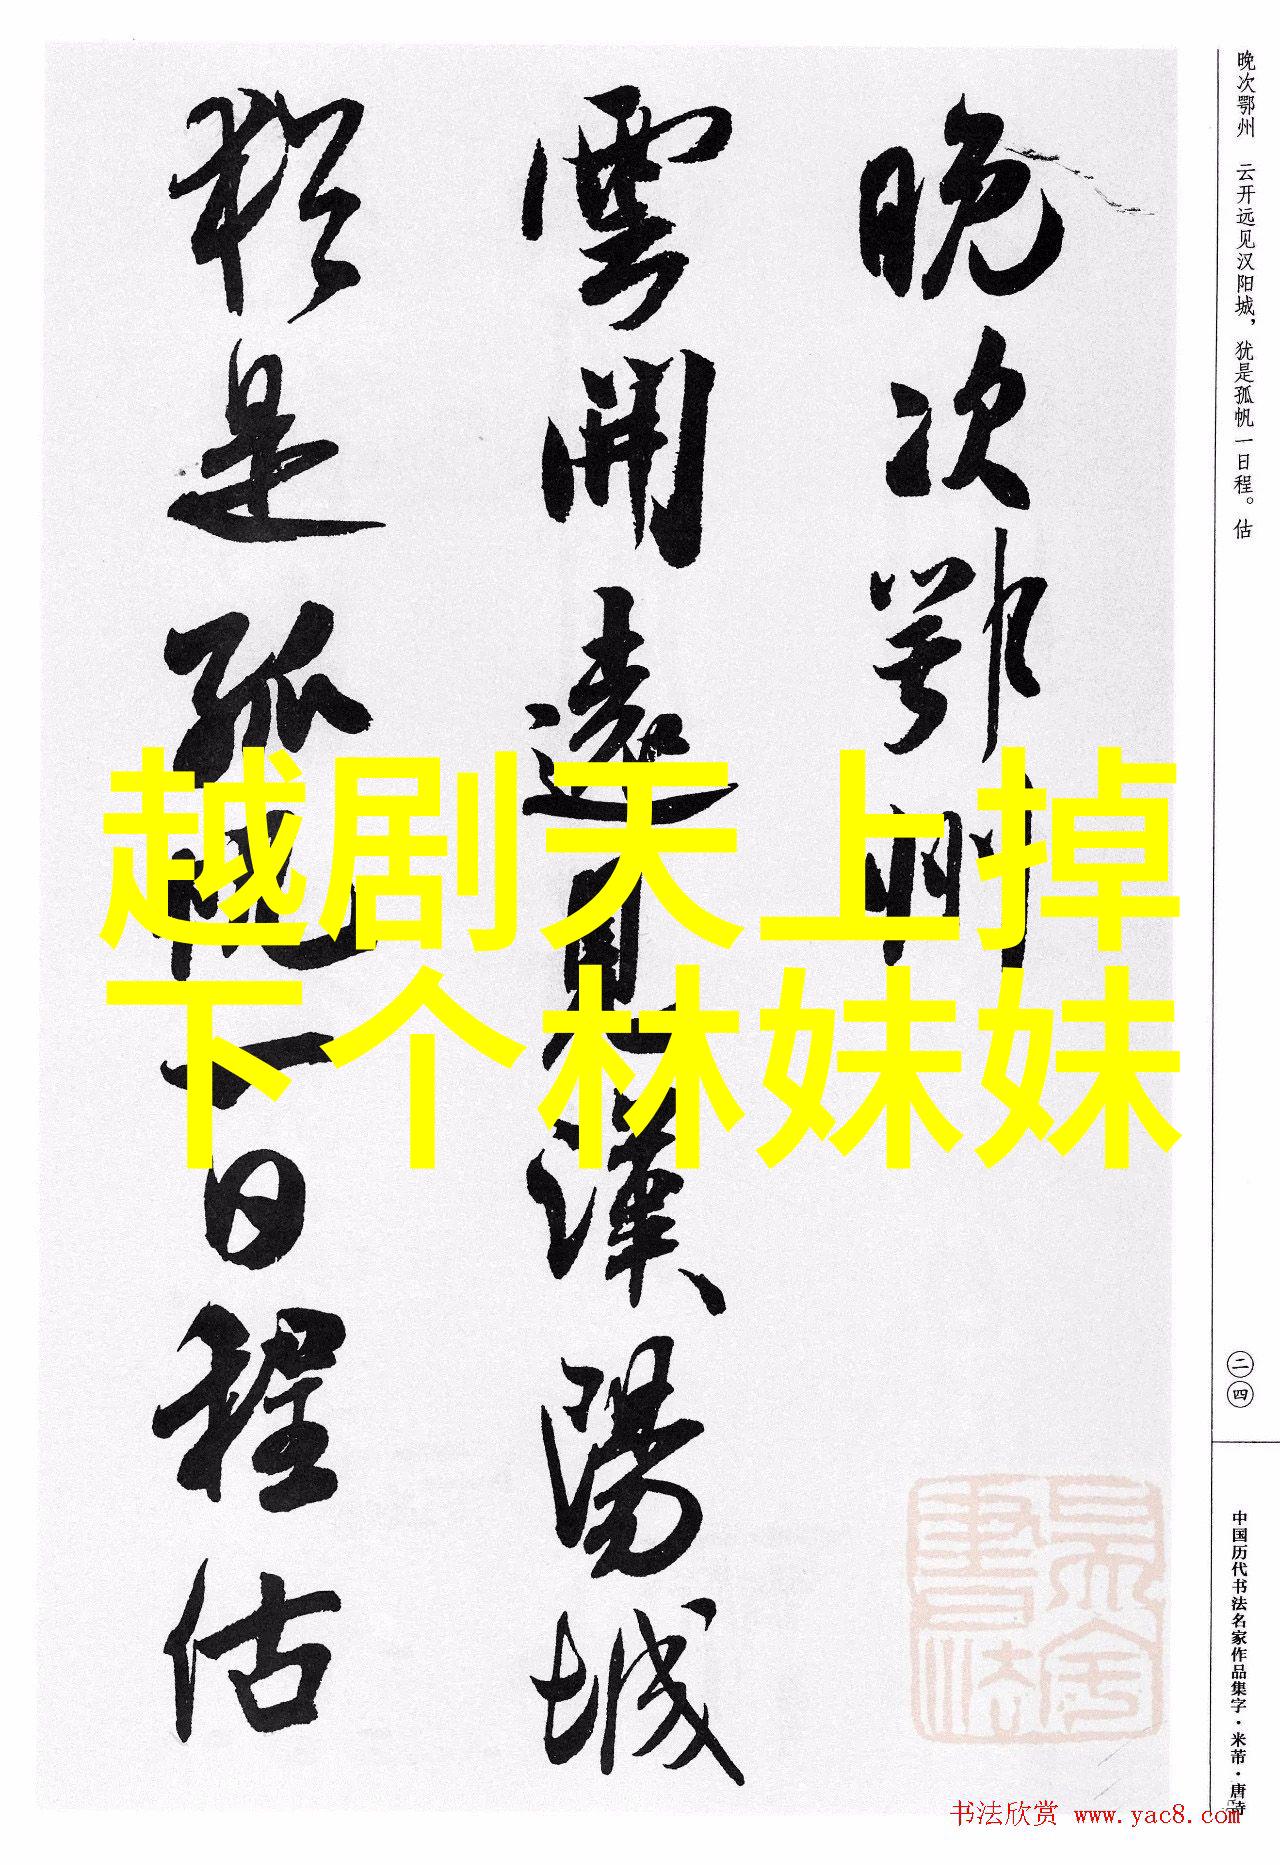 晚次鄂州
雲開遠見漢陽城
猶是孤帆一日程估
越剧天上掉
下个林妹妹
晚次鄂州　云开远见汉阳城，犹是孤帆一日程。估
二四
中国历代书法名家作品集字·米芾·唐诗
书法欣赏 www.yac8.com